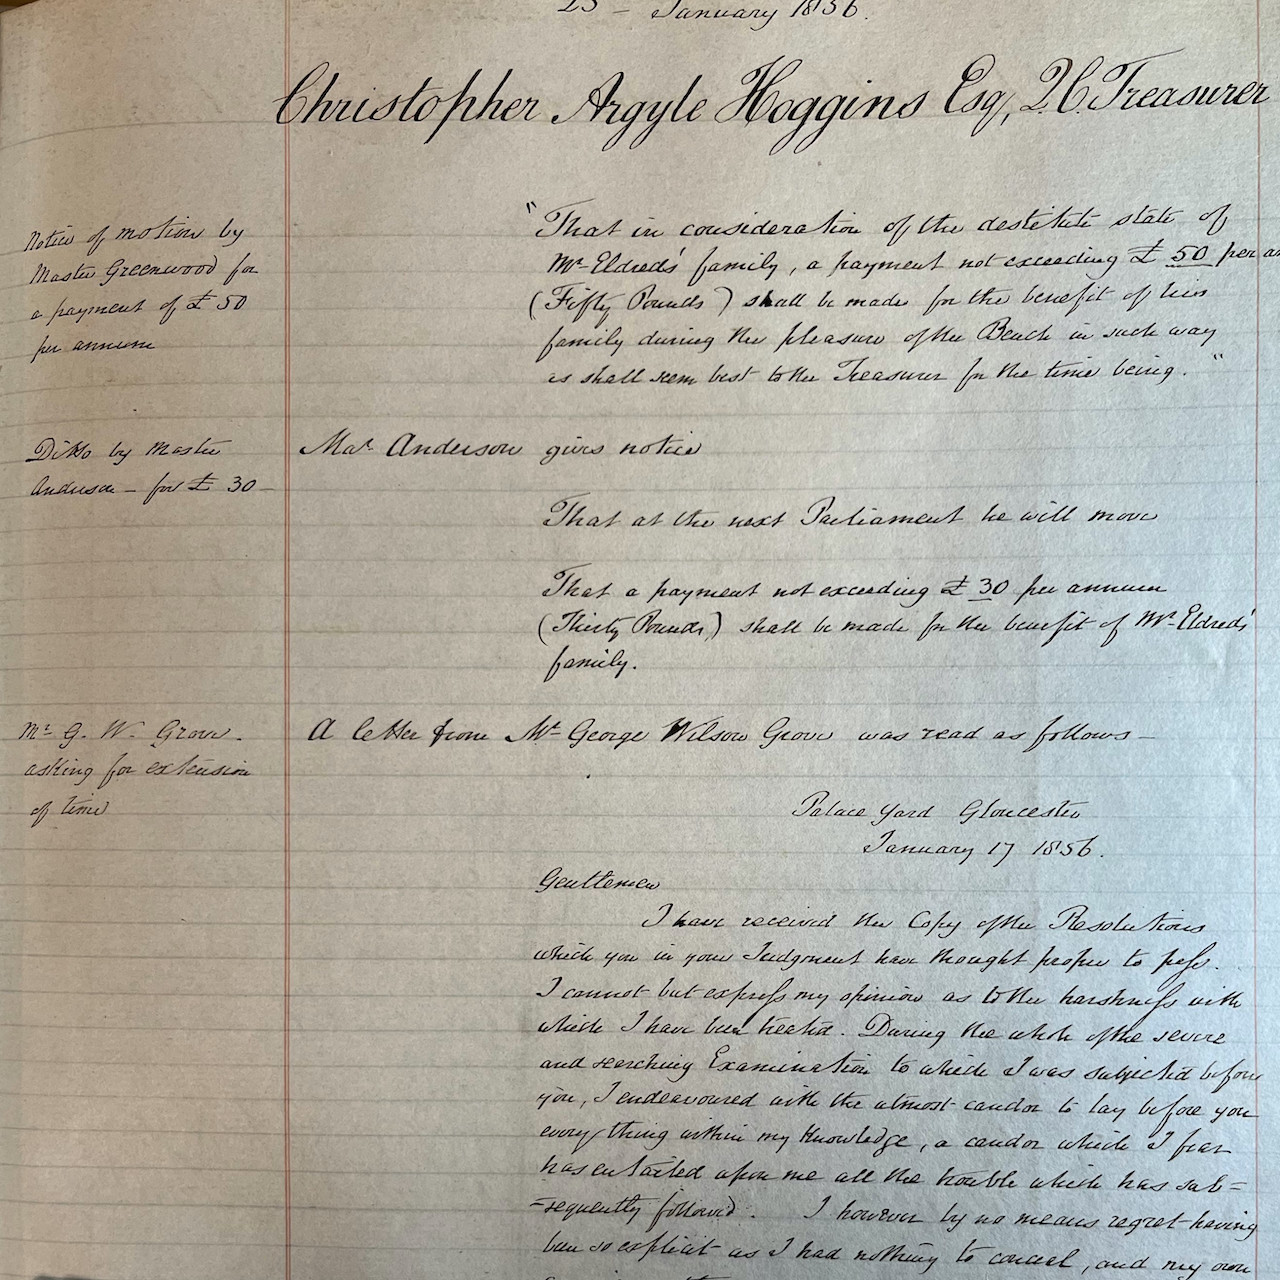 25 - January 1856.
Christopher Argyle Hoggins Esq, Q.C. Treasurer
Notice of motion by
Master Greenwood for
a payment of £50
per annum
"That in consideration of the destitute state of
Mr Eldred's family, a payment not exceeding £50 per an
(Fifty Pounds) shall be made for the benefit of his
family during the pleasure of the Bench in such way
as shall seem best to the Treasurer for the time being."
Ditto by Master
Anderson - for £30 -
Mar Anderson gives notice
That at the next Parliament he will move
That a payment not exceeding £30 per annum
(Thirty Pounds) shall be made for the benefit of Mr Eldred's
family.
Mr G. W. Grove.
asking for extension
of time
A letter from Mr George Wilson Grove was read as follows -
Palace Yard Gloucester
January 17 1856.
Gentlemen
I have received the Copy of the Resolutions
which you in your Judgment have thought proper to pass.
I cannot but express my opinion as to the harshness with
which I have been treated. During the whole of the severe
and searching Examination to which I was subjected before
you, I endeavoured with the utmost candor to lay before you
every thing within my Knowledge, a candor which I fear
has entailed upon me all the trouble which has sub=
=sequently followed. I however by no means regret having
been so explicit as I had nothing to conceal, and my own